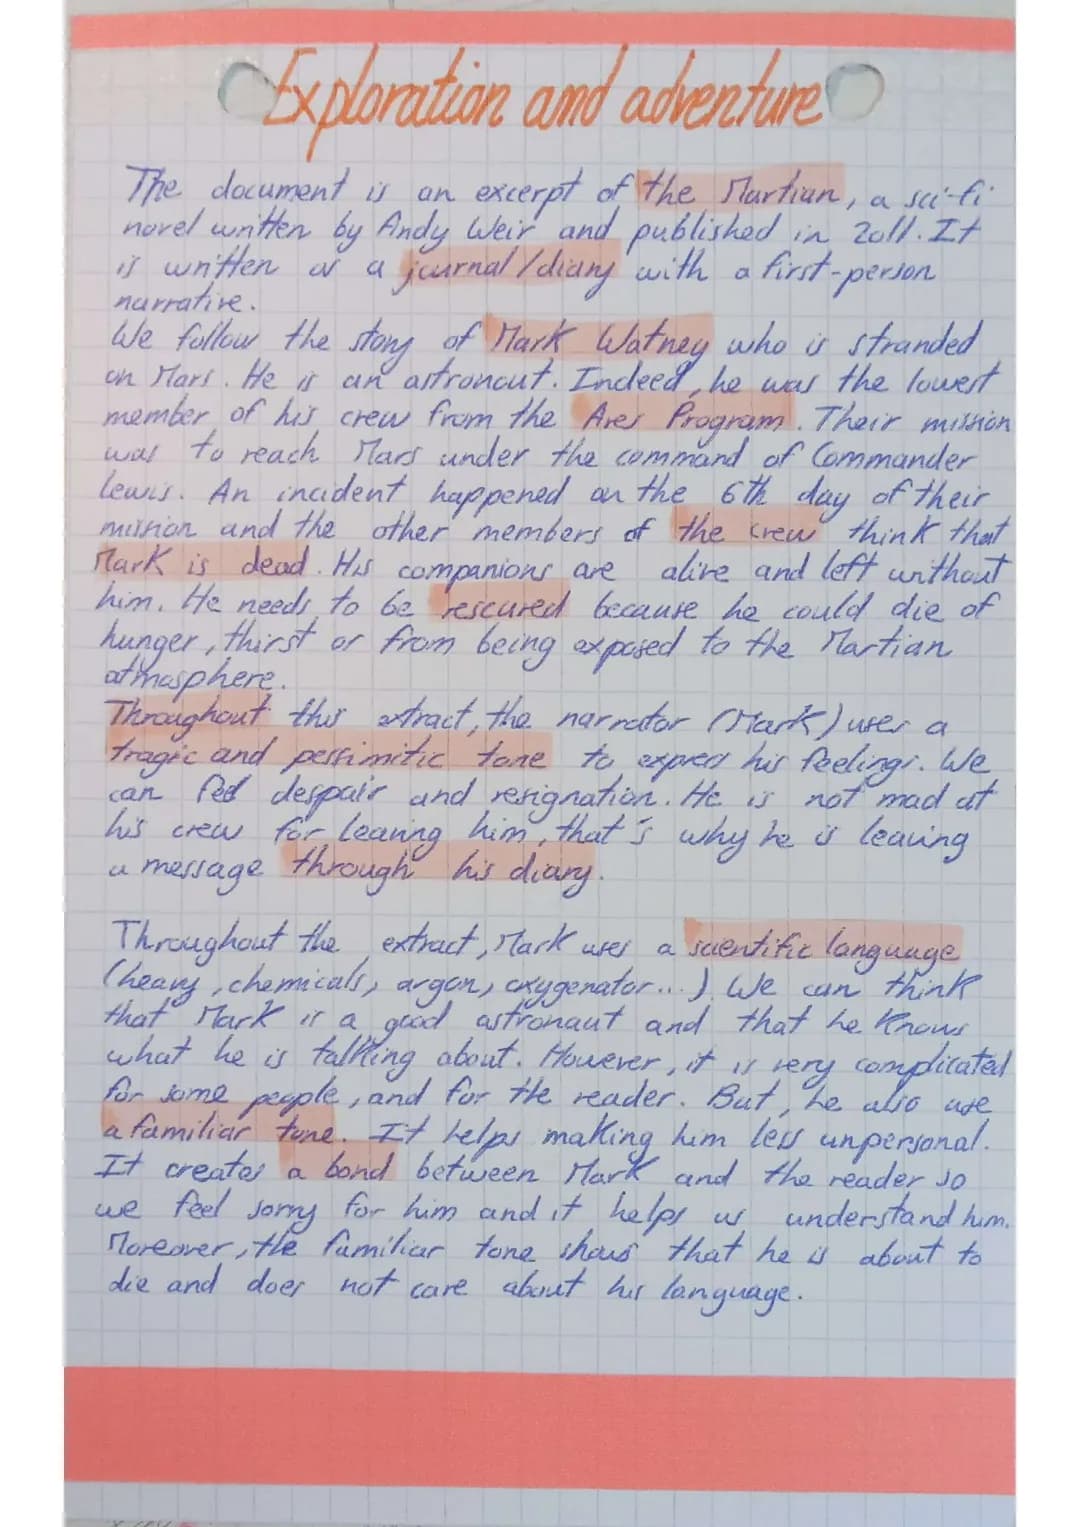 Exploration and adventure
The document is an excerpt of the Martian, a sci-fi
novel written by Andy Weir and published in 2011. It
is written as a journal/diary with a first-person
narrative.
We follow the story of Mark Watney who is stranded
on Mars. He is an astronaut. Indeed, he was the lowest
member of his crew from the Ares Program. Their mission
was to reach Mars under the command of Commander
Lewis. An incident happened on the 6th day of their
mission and the other members of the crew think that
Mark is dead. His companions are alive and left without
him. He needs to be rescured because he could die of
hunger, thirst or from being exposed to the Martian
atmosphere.
Throughout this extract, the narrator (Mark) uses a
tragic and pessimistic tone to express his feelings. We
can feel despair and resignation. He is not mad at
his crew for leaving him, that's why he is leaving
a message through his diary.
Throughout the extract, Mark uses a scientific language
(heavy, chemicals, argon, oxygenator...). We can think
that Mark is a good astronaut and that he knows
what he is talking about. However, it is very complicated
for some people, and for the reader. But, he also use
a familiar tone. It helps making him less unpersonal.
It creates a bond between Mark and the reader so
we feel sorry for him and it helps us understand him.
Moreover, the familiar tone shows that he is about to
die and does not care about his language.